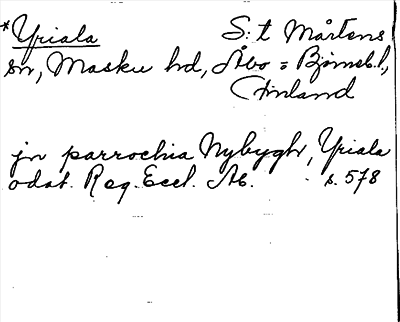 *Yriala S:t Mårtens
sn, Masku hd, Åbo = Björneb. l.,
Finland
jn parrochia Nybyghr, Yriala
odat. Reg. Eccl. Ab. s. 578